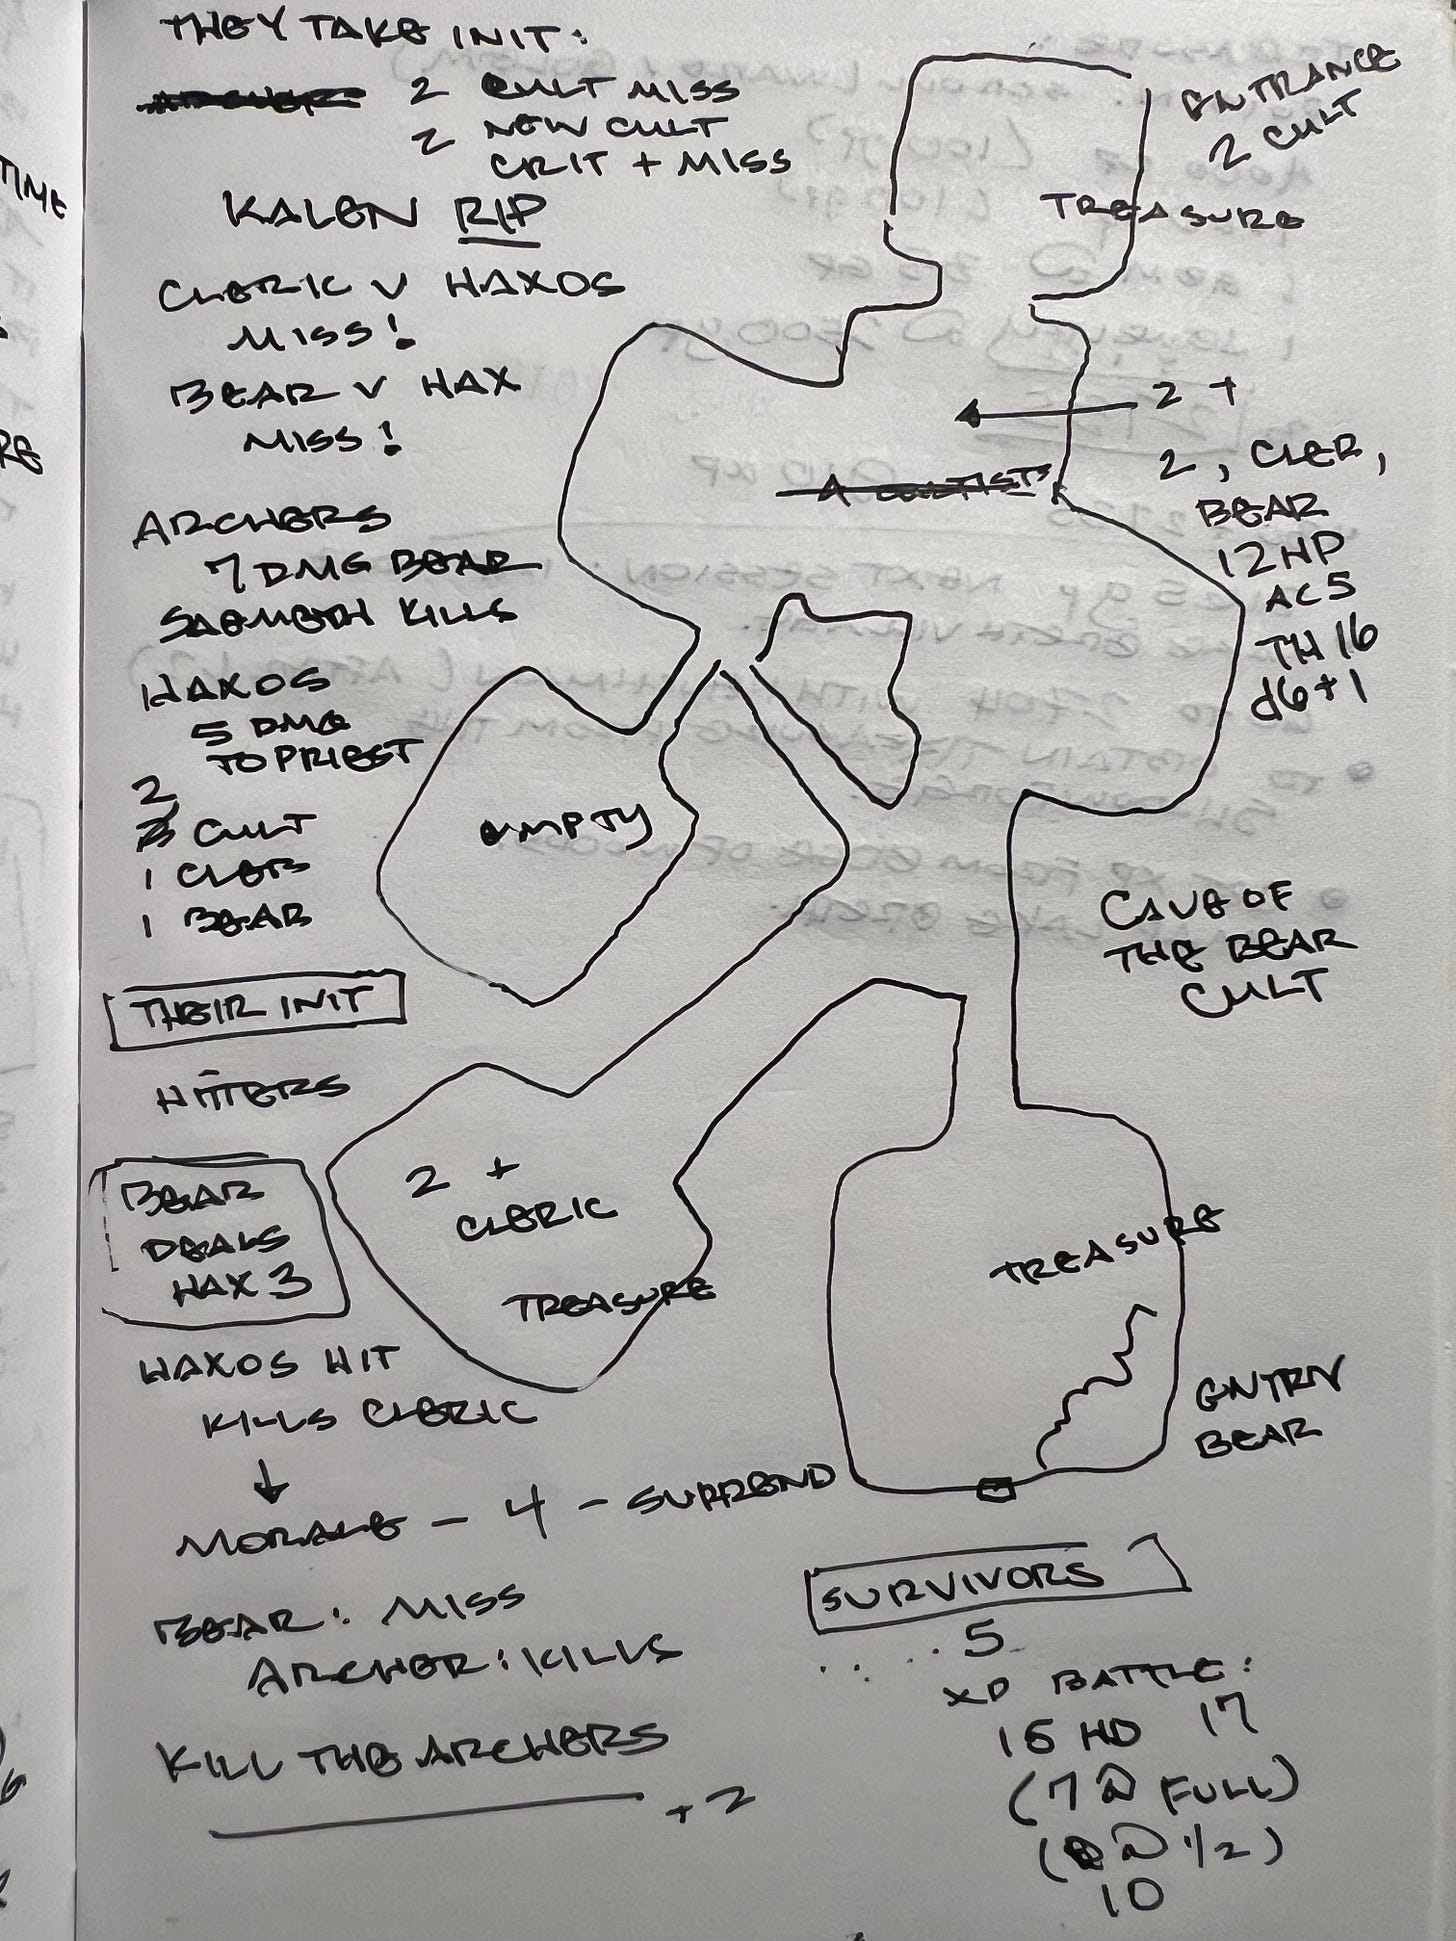 THEY TAKE INIT:
2 CULT MISS
2 NEW CULT
CRIT + MISS
KALEN RIP
CLERIC V HAXOS
MISS!
BEAR V HAX
MISS!
ARCHERS
7 DMG BEAR
KILLS
HAXOS
5 DMG
TO PRIEST
2
CULT
1 CLER
1 BEAR
THEIR INIT
HITTERS
BEAR
DEALS
HAX 3
HAXOS HIT
KILLS CLERIC
↓
MORALE - 4 - SURREND
BEAR: MISS
ARCHER: KILLS
KILL THE ARCHERS
+2
ENTRANCE
2 CULT
TREASURE
2 +
2, CLER,
BEAR
12 HP
AC5
TH 16
d6+1
4 CULTISTS
EMPTY
CAVE OF
THE BEAR
CULT
2 +
CLERIC
TREASURE
TREASURE
ENTRY
BEAR
SURVIVORS
5
XP BATTLE:
HD 17
(7 @ FULL)
(@ 1/2)
10
TIME
RE